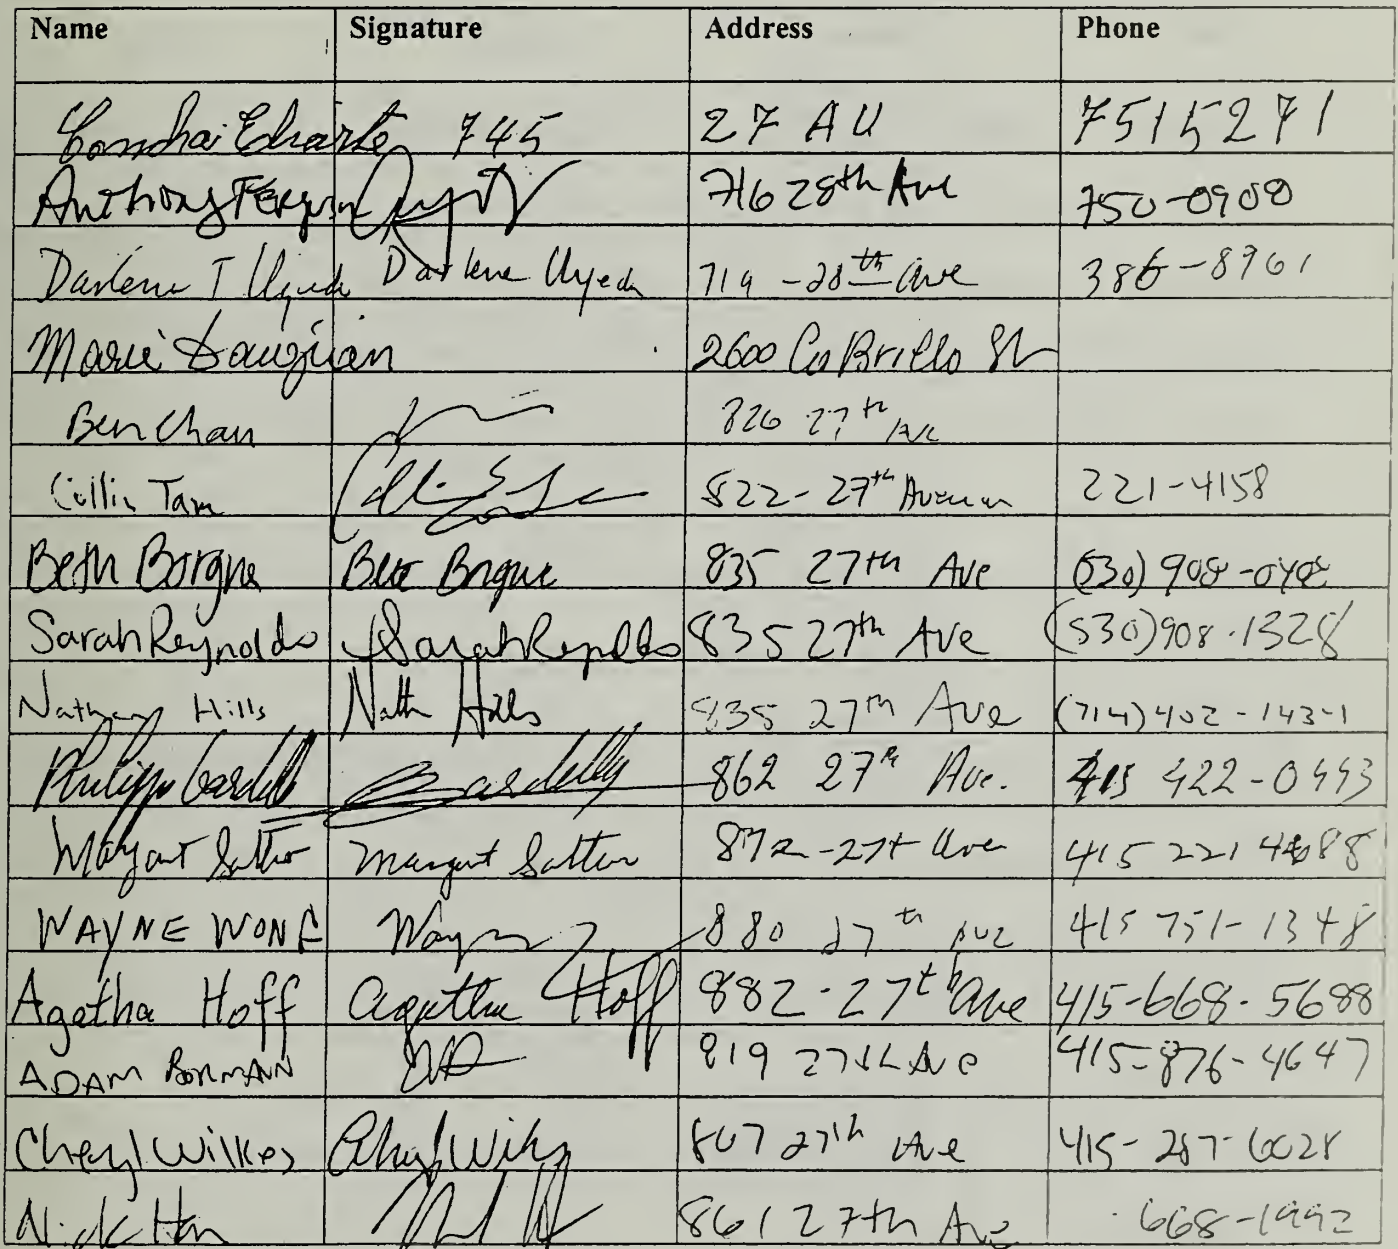 Name Signature Address Phone
745 27 AU 7515271
Anthony 716 28th Ave 750-0900
Darlene T Uyeda Darlene Uyeda 719 - 28th Ave 386-8961
Marie 2600 CaBrillo St
Ben Chan 826 27th Ave
Collin Tam 822 - 27th Avenue 221-4158
Beth Borgne 835 27th Ave (530) 908
Sarah Reynolds Sarah Reynolds 835 27th Ave (530) 908-1328
Nathan Hills 835 27th Ave (714) 402-1431
862 27th Ave. 415 422-0443
Margaret Sutter Margaret Sutter 872-27th 415 221
WAYNE WONG Wayne 880 27th Ave 415 751-1348
Agatha Hoff Agatha Hoff 882-27th Ave 415-668-5688
ADAM BORMANN 819 27th Ave 415-876-4647
Cheryl Wilkes Cheryl Wilkes 867 27th Ave 415-287-6028
Nick 861 27th Ave 668-1992